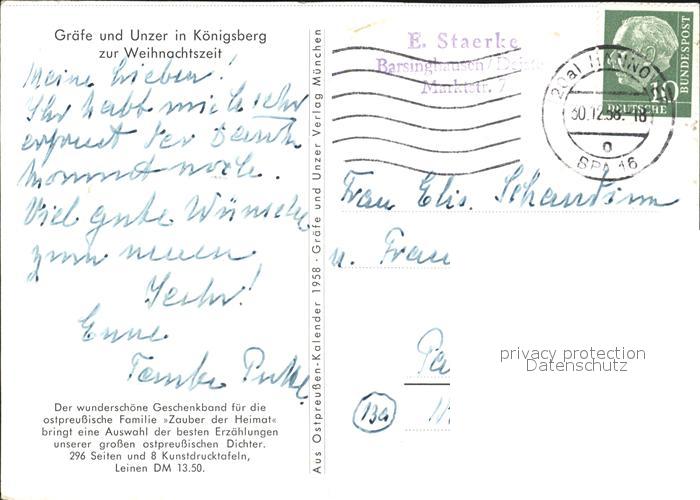 Gräfe und Unzer in Königsberg
zur Weihnachtszeit
Meine Lieben!
Ihr habt mich sehr
erfreut der Dank
kommt noch.
Viel gute Wünsche
zum neuen
Jahr!
Eure
Tante
Der wunderschöne Geschenkband für die
ostpreußische Familie »Zauber der Heimat«
bringt eine Auswahl der besten Erzählungen
unserer großen ostpreußischen Dichter.
296 Seiten und 8 Kunstdrucktafeln,
Leinen DM 13.50.
Aus Ostpreußen-Kalender 1958 · Gräfe und Unzer Verlag München
E. Staerke
Barsinghausen/Deister
Marktstr. 7
HANNO
30.12.58. 18
SPA 16
DEUTSCHE
BUNDESPOST
10
Frau Elis.
u. Frau
13a
privacy protection
Datenschutz